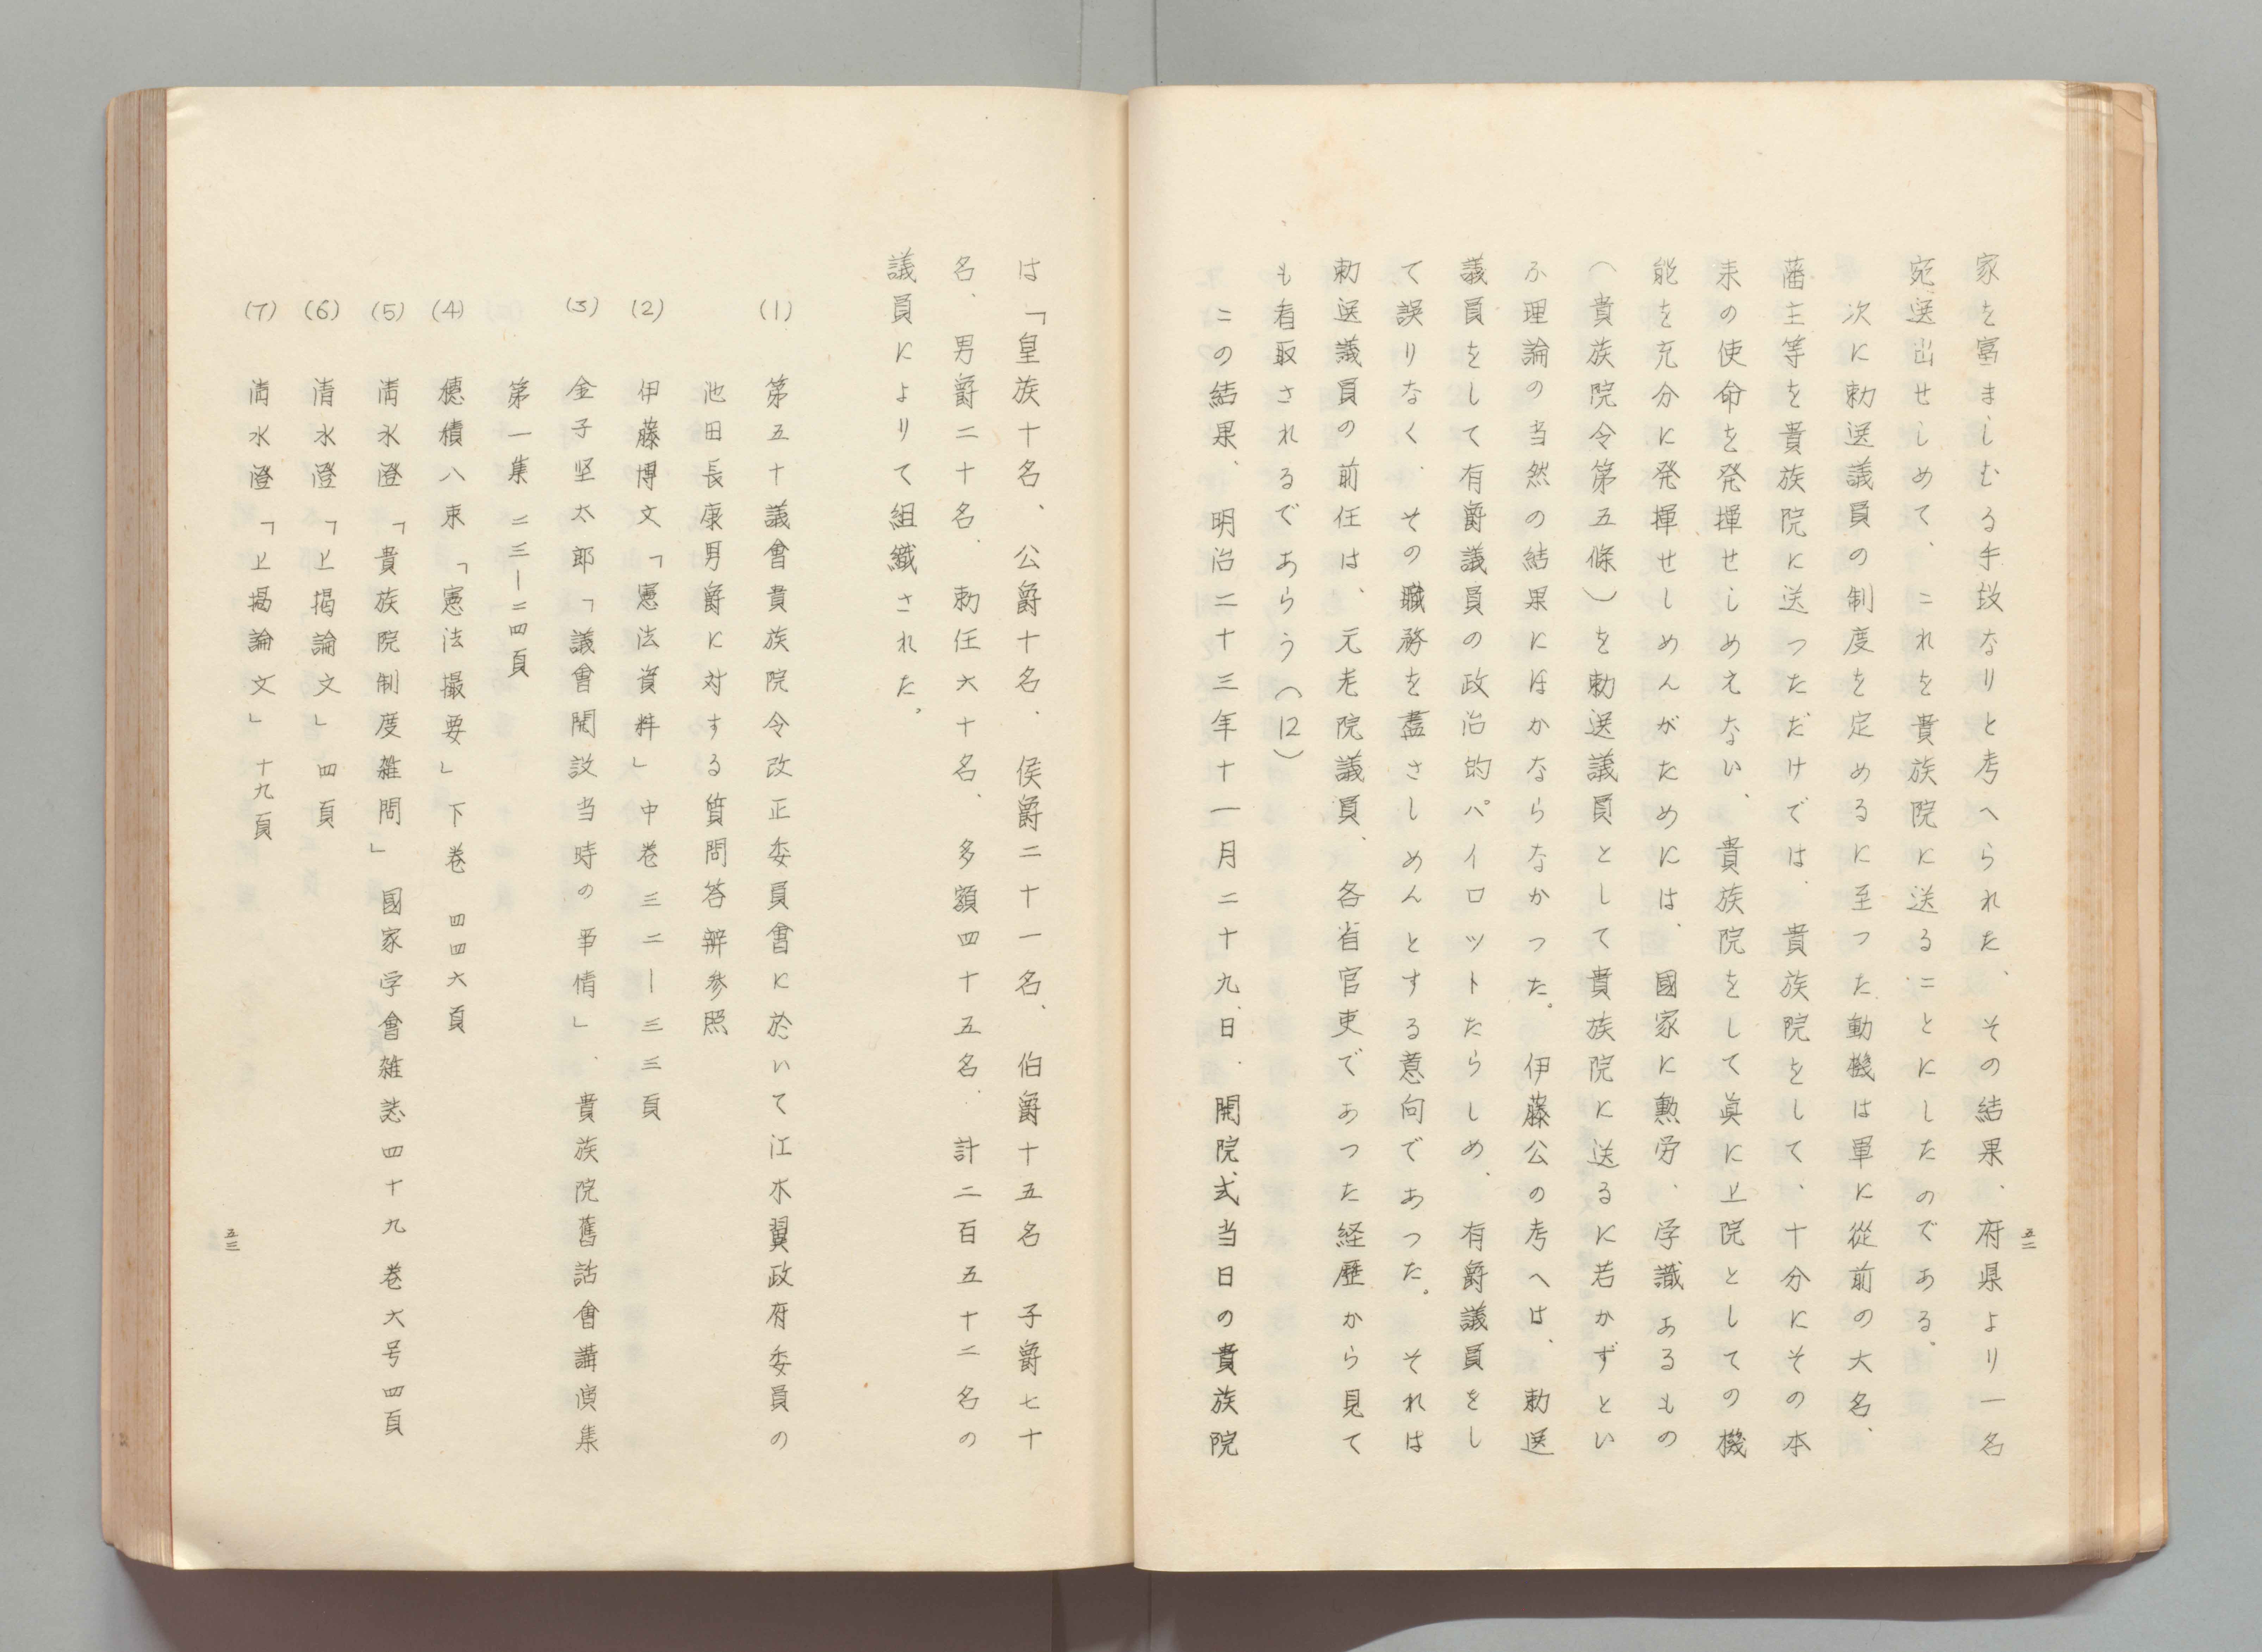 家を富ましむる手段なりと考へられた、その結果、府県より一名
宛選出せしめて、これを貴族院に送ることにしたのである。
次に勅選議員の制度を定めるに至つた動機は単に従前の大名、
藩主等を貴族院に送つただけでは、貴族院をして、十分にその本
来の使命を発揮せしめえない、貴族院をして眞に上院としての機
能を充分に発揮せしめんがためには、國家に勲労、学識あるもの
(貴族院令第五條)を勅選議員として貴族院に送るに若かずとい
ふ理論の当然の結果にほかならなかつた。伊藤公の考へは、勅選
議員をして有爵議員の政治的パイロットたらしめ、有爵議員をし
て誤りなく、その職務を盡さしめんとする意向であつた。それは
勅選議員の前任は、元老院議員、各省官吏であつた経歴から見て
も看取されるであらう(12)
この結果、明治二十三年十一月二十九日、開院式当日の貴族院
五二
は「皇族十名、公爵十名、侯爵二十一名、伯爵十五名 子爵七十
名、男爵二十名、勅任六十名、多額四十五名、計二百五十二名の
議員によりて組織された。
(1) 第五十議會貴族院令改正委員會に於いて江木翼政府委員の
池田長康男爵に対する質問答辨参照
(2) 伊藤博文「憲法資料」中巻 三二―三三頁
(3) 金子坚太郎「議會開設当時の事情」、貴族院舊話會講演集
第一集 二三―二四頁
(4) 穂積八束「憲法撮要」下巻 四四六頁
(5) 清水澄「貴族院制度雑問」國家学會雑誌四十九巻六号四頁
(6) 清水澄「上掲論文」四頁
(7) 清水澄「上掲論文」十九頁
五三